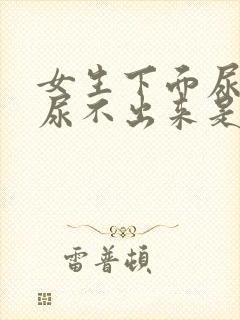 女生下面尿
尿不出来是
雷普頓